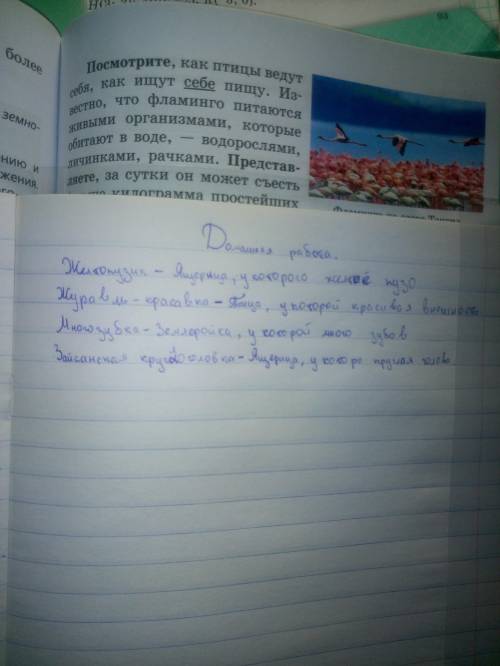 93
более
земно-
ению и
жения.
Посмотрите, как птицы ведут
себя, как ищут себе пищу. Из-
вестно, что фламинго питаются
живыми организмами, которые
обитают в воде, — водорослями,
личинками, рачками. Представ-
ляете, за сутки он может съесть
килограмма простейших
Домашняя работа.
Желтопузик - Ящерица, у которого пузо
Журавль-красавка - Птица, у которой красивая внешность
Многозубка - Землеройка, у которой много зубов
Зайсанская круглоголовка - Ящерица, у которо круглая